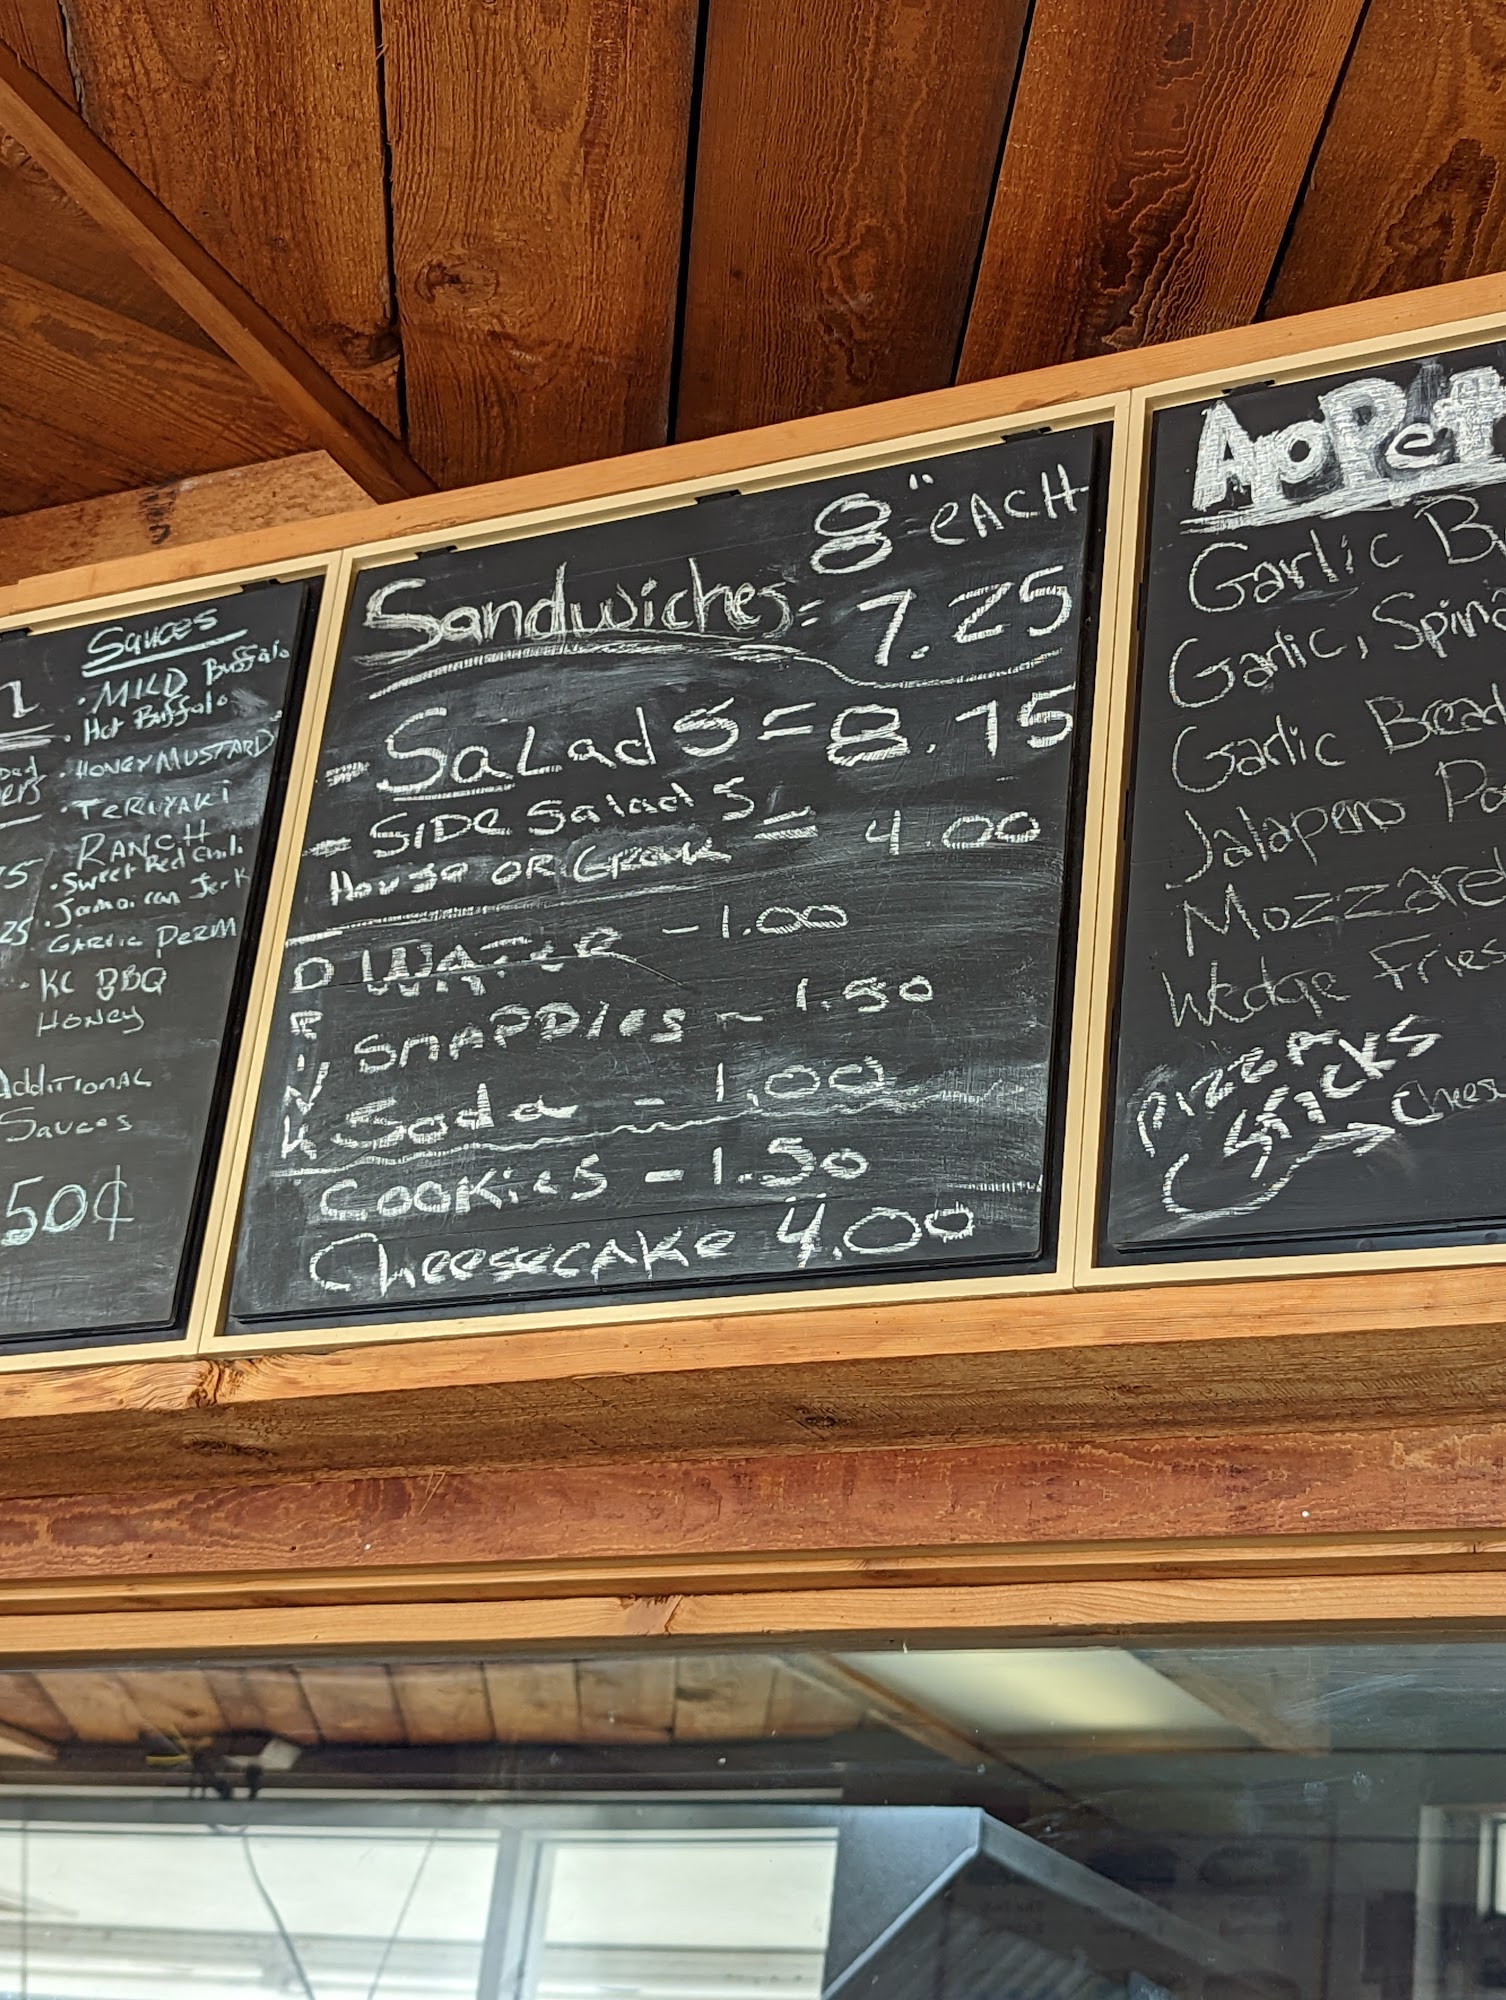 Sauces
• MILD Buffalo
• Hot Buffalo
• HONEY MUSTARD
• TERIYAKI
RANCH
• Sweet Red Chili
• Jamaican Jerk
GARLIC PERM
• KC BBQ
HONEY
ADDITIONAL
Sauces
50¢
8" EACH
Sandwiches = 7.25
- Salads = 8.75
- SIDE Salads -
House OR Greek - 4.00
DRINK
WATER - 1.00
SNAPPLES - 1.50
Soda - 1.00
COOKIES - 1.50
CheesecAKe 4.00
APPet
Garlic B
Garlic, Spina
Garlic Bread
Jalapeno Po
Mozzarel
Wedge Fries
PIZZA
STICKS
Cheese